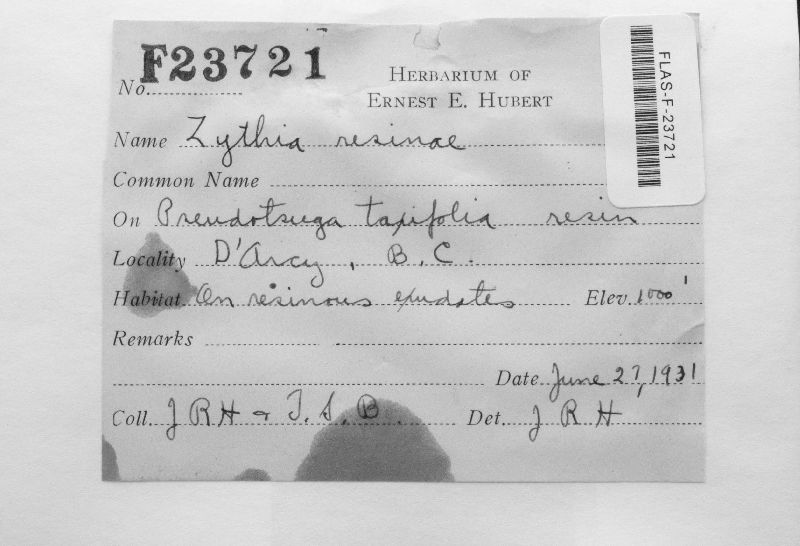 No. F23721
HERBARIUM OF
ERNEST E. HUBERT
FLAS-F-23721
Name Zythia resinae
Common Name
On Pseudotsuga taxifolia resin
Locality D'Arcy, B.C.
Habitat On resinous exudates Elev. 1000'
Remarks
Date June 27, 1931
Coll. J R H & T. S. B.
Det. J R H